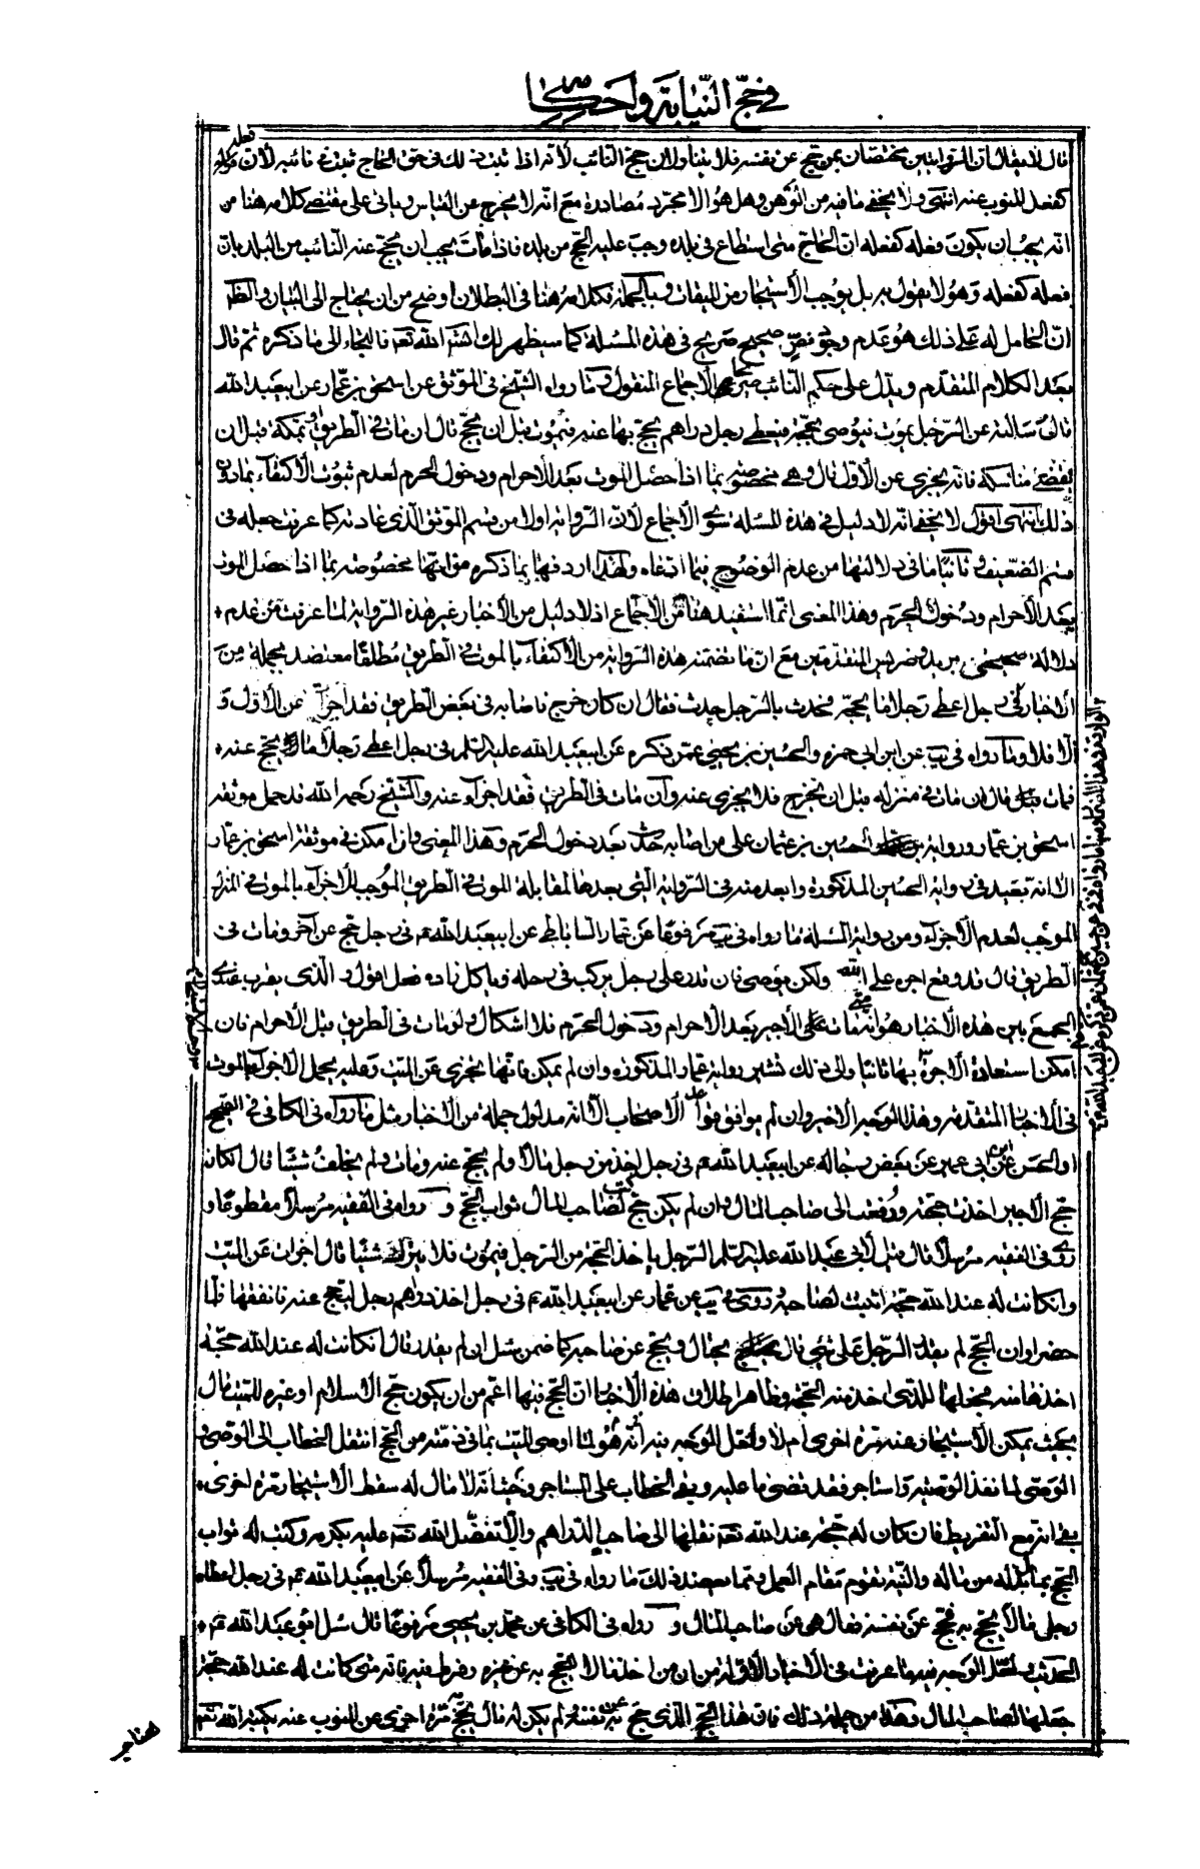 في حج النيابة واحكامه
قال لا يقال ان الروايتين مختصتان بمن حج عن نفسه فلا يتناولان حجة النائب لانه اذا ثبت ذلك في حق الحاج ثبت في نائبه لان فعله
كفعل المنوب عنه انتهى ولا يخفى ما فيه من الوهن وهل هو الا مجرد مصادرة مع انه لا مخرج عن القياس وياتي على مقتضى كلامه هنا من
انه يجب ان يكون فعله كفعله ان الحاج متى استطاع في بلده وجب عليه الحج من بلده فاذا مات يجب ان يحج عنه النائب من البلد بان
فعله كفعله وهو لا يقول به بل يوجب الاستيجار من الميقات وبالجملة فكلامه هنا في البطلان اوضح من ان يحتاج الى البيان والظاهر
ان الحامل له على ذلك هو عدم وجود نص صحيح صريح في هذه المسئلة كما سيظهر لك انشاء الله تعالى فالتجاء الى ما ذكره ثم قال
بعد الكلام المتقدم ويدل على حكم النائب صريحا الاجماع المنقول وما رواه الشيخ في الموثق عن اسحق بن عمار عن ابيعبد الله
قال سالته عن الرجل يموت فيوصي بحجة فيعطى رجل دراهم يحج بها عنه فيموت قبل ان يحج قال ان مات في الطريق او بمكة قبل ان
يقضي مناسكه فانه يجزي عن الاول قال وهي مخصوصة بما اذا حصل الموت بعد الاحرام ودخول الحرم لعدم ثبوت الاكتفاء بما دون
ذلك انتهى اقول لا يخفى انه لا دليل في هذه المسئلة سوى الاجماع لان الرواية اولا من قسم الموثق الذي عادته كما عرفت جعله في
قسم الضعيف وثانيا ما في دلالتها من عدم الوضوح فيما ادعاه ولهذا اردفها بما ذكره من انها مخصوصة بما اذا حصل الموت
بعد الاحرام ودخول الحرم وهذا المعنى انما استفيد هنا من الاجماع اذ لا دليل من الاخبار غير هذه الرواية لما عرفت من عدم
دلالة صحيحتي بريد وضريس المتقدمتين مع ان ما تضمنته هذه الرواية من الاكتفاء بالموت في الطريق مطلقا معتضد بجملة من
الاخبار في رجل اعطى رجلا ما يحجه فحدث بالرجل حدث فقال ان كان خرج فاصابه في بعض الطريق فقد اجزات عن الاول و
الا فلا وما رواه في يب عن ابن ابي حمزة والحسين بن يحيى عمن ذكره عن ابيعبد الله عليه السلم في رجل اعطى رجلا مالا يحج عنه
فمات قال ان مات في منزله قبل ان يخرج فلا يجزي عنه وان مات في الطريق فقد اجزا عنه والشيخ رحمه الله قد حمل موثقة
اسحق بن عمار ورواية الحسين بن عثمان على من اصابه حدث بعد دخول الحرم وهذا المعنى وان امكن في موثقة اسحق بن عمار
الا انه بعيد في رواية الحسين المذكورة وابعد منه في الرواية التي بعدها لمقابلة الموت في الطريق الموجب للاجزاء بالموت في المنزل
الموجب لعدم الاجزاء ومن روايات المسئلة ما رواه في يب مرفوعا عن عمار الساباطي عن ابيعبد الله ع في رجل حج عن آخر ومات في
الطريق قال قد وقع اجره على الله ولكن يوصي فان قدر على رجل يركب في رحله وياكل زاده فعل اقول والذي يقرب عندي
الجمع بين هذه الاخبار هو انه متى مات الاجير بعد الاحرام ودخول الحرم فلا اشكال ولو مات في الطريق قبل الاحرام فان
امكن استعادة الاجرة بها ثانيا والى ذلك تشير رواية عمار المذكورة وان لم يمكن فانها تجزي عن الميت وعليه يحمل الاجزاء بالموت
في الاخبار المتقدمة وهذا الوجه الاخير وان لم يوافق قواعد الاصحاب الا انه مدلول جملة من الاخبار مثل ما رواه في الكافي في الصحيح
او الحسن عن ابن ابي عمير عن بعض رجاله عن ابيعبد الله ع في رجل اخذ من رجل مالا ولم يحج عنه ومات ولم يخلف شيئا قال ان كان
حج الاجير اخذت حجته ودفعت الى صاحب المال وان لم يكن حج كتب لصاحب المال ثواب الحج ورواه في الفقيه مرسلا مقطوعا و
روى في الفقيه مرسلا قال قيل لابي عبد الله عليه السلم الرجل ياخذ الحجة من الرجل فيموت فلا يترك شيئا قال اجزات عن الميت
وان كانت له عند الله حجة اثبتت لصاحبه وروى في يب عن عمار عن ابيعبد الله ع في رجل اخذ دراهم رجل ليحج عنه فانفقها فلما
حضر اوان الحج لم يقدر الرجل على شيء قال يحتال ويحج عن صاحبه كما ضمن سئل ان لم يقدر قال ان كانت له عند الله حجة
اخذها منه فجعلها للذي اخذ منه الحجة وظاهر اطلاق هذه الاخبار ان الحج فيها اعم من ان يكون حج الاسلام او غيره للميت مال
بحيث يمكن الاستيجار عنه مرة اخرى ام لا ولعل الوجه فيه انه هو لما اوصى الميت بما في ذمته من الحج انتقل الخطاب الى الوصي و
الوصي لما نفذ الوصية واستاجر فقد قضى ما عليه وبقى الخطاب على المستاجر وحيث انه لا مال له سقط الاستيجار مرة اخرى
بقي انه مع التفريط فان كان له حجة عند الله تعه نقلها الى صاحب الدراهم والا تفضل الله تعه عليه بكرمه وكتب له ثواب
الحج بما بذله من ماله والنية تقوم مقام العمل ومما يعضد ذلك ما رواه في يب وفي الفقيه مرسلا عن ابيعبد الله ع في رجل اعطاه
رجل مالا يحج به فحج عن نفسه فقال هي عن صاحب المال ورواه في الكافي عن محمد بن يحيى مرفوعا قال سئل ابو عبد الله ع
الحديث ولعل الوجه فيه ما عرفت في الاخبار الاولة من ان من اخذ مالا ليحج به عن غيره وفرط فيه فانه متى كانت له عند الله حجة
جعلها لصاحب المال وهذا من جملة ذلك فان هذا الحج الذي حج به عن نفسه ولم يكن له مال يحج به مرة اخرى عن المنوب عنه يكتبه الله تعه